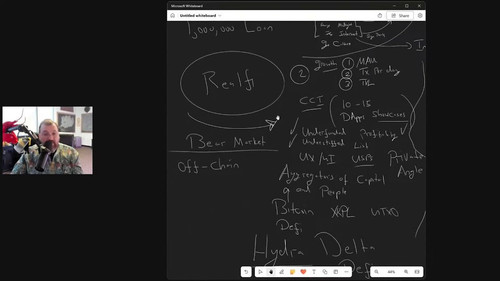 Microsoft Whiteboard
Untitled whiteboard
Share
1,000,000 Loan
growth ① MAU
② ② Tx Per day
③ TVL
Realfi
CCI 10-15
DApps Showcases
Underfunded Profitability
Understaffed List
Bear Market
UX/UI USPs
Off-Chain
Angle
Aggregators of Capital
and People
Bitcoin XRPL UTXO
Defi
Hydra Delta
Defi
44%